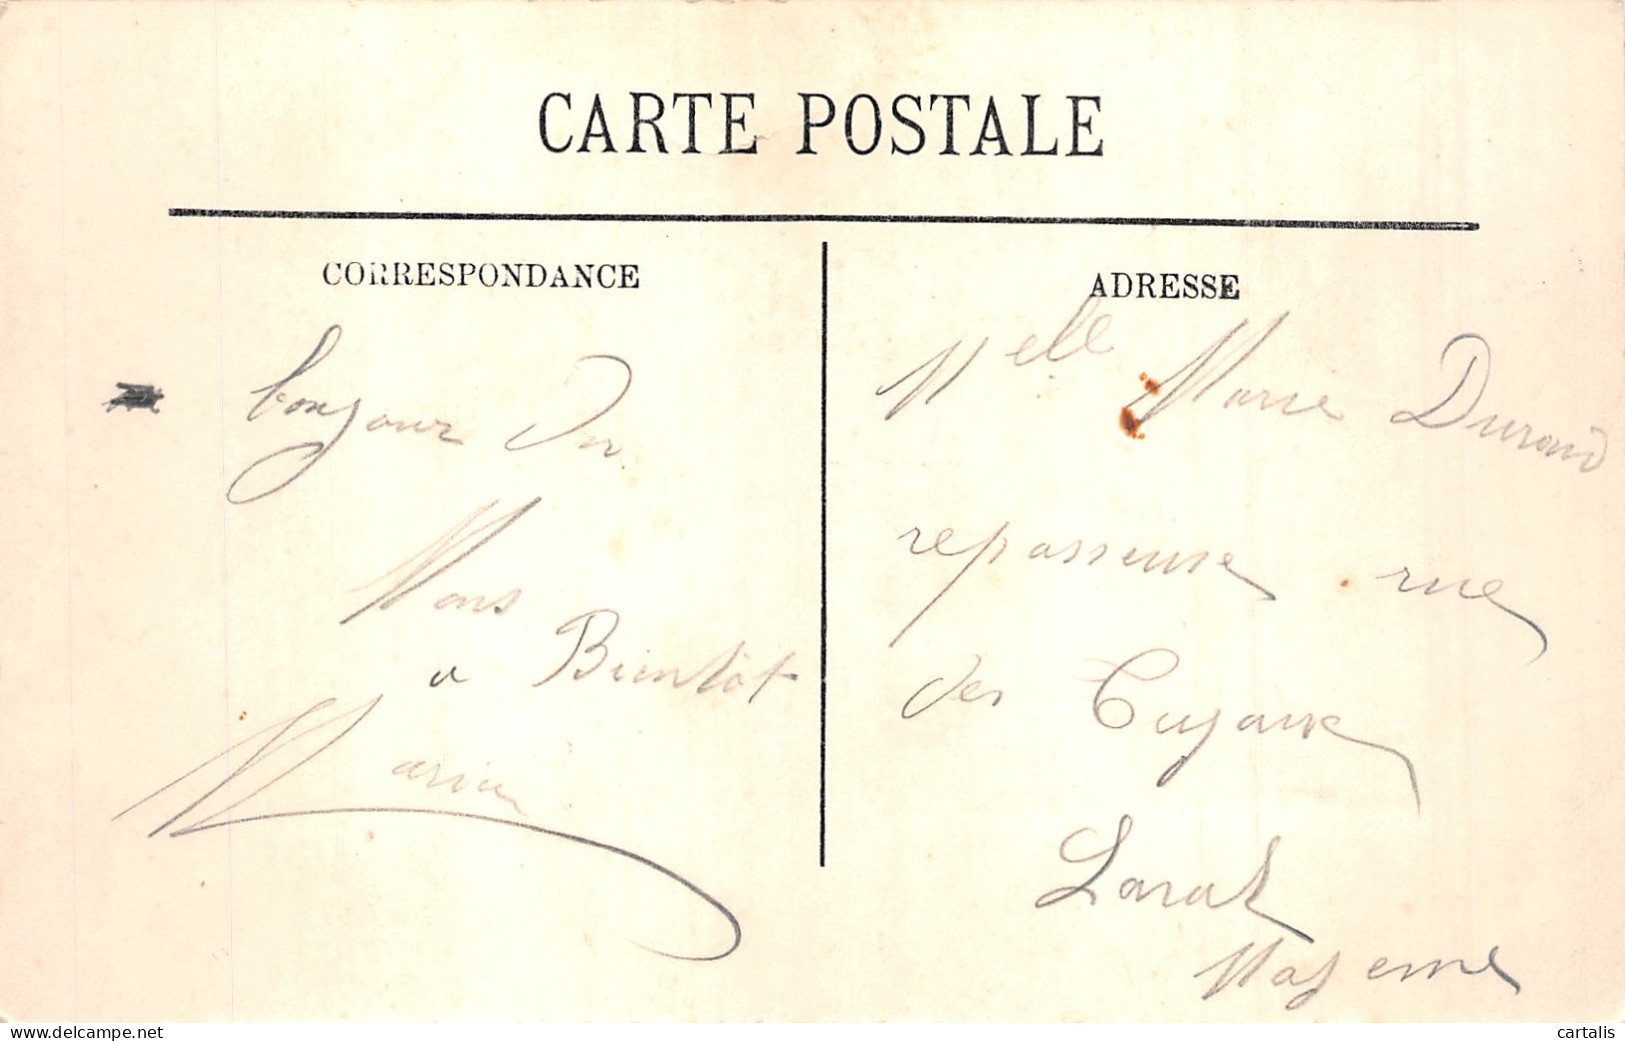 CARTE POSTALE
CORRESPONDANCE
bonjour du
Mans
a Bientôt
Maria
ADRESSE
Melle Marie Durand
repasseuse rue
des
Laval
Mayenne
cartalis